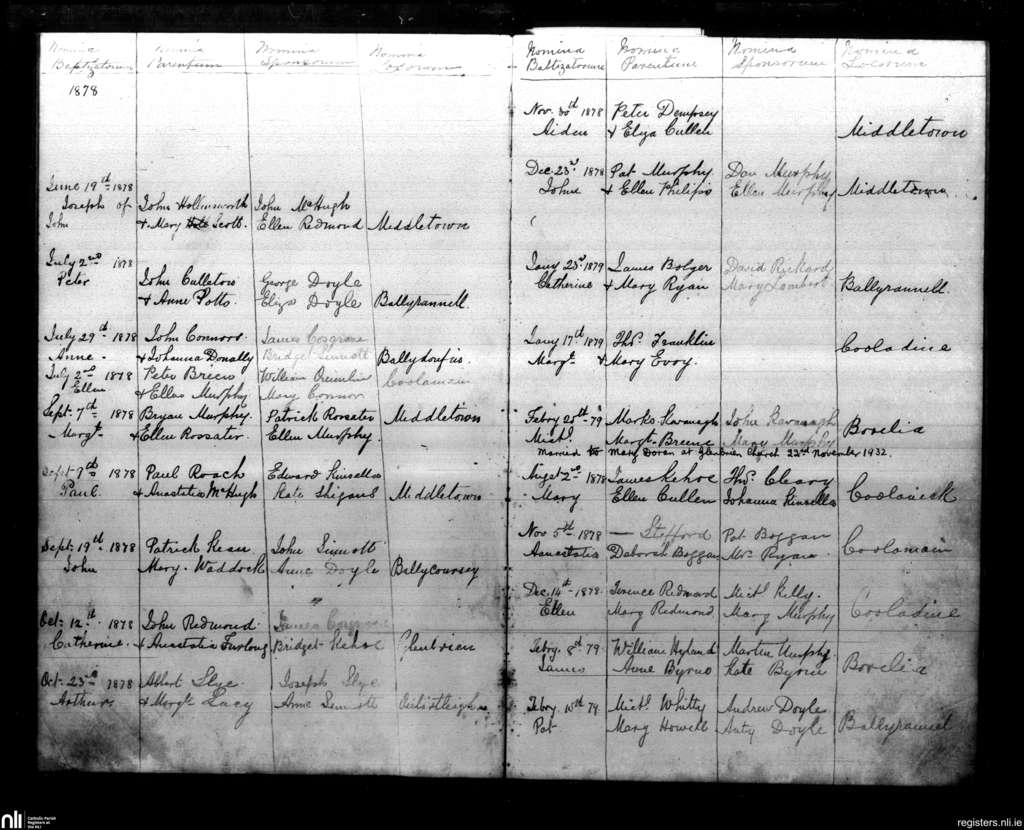 Nomina Nomina Nomina Nomina
Baptizatorum Parentum Sponsorum Locorum
1878
June 19th 1878
Joseph of John Hollinsworth John McHugh
John & Mary Scott. Ellen Redmond Middletown
July 2nd 1878
Peter John Culleton George Doyle
& Anne Potts. Eliza Doyle Ballyrannell.
July 29th 1878 John Connors James Cosgrave
Anne - & Johanna Donally Bridget Sinnott
July 2nd 1878 Peter Brien William Coolamain
Ellen & Ellen Murphy Mary Connor
Sept. 7th 1878 Bryan Murphy Patrick Rossater Middletown
Margt & Ellen Rossater. Ellen Murphy.
Sept 9th 1878 Paul Roach Edward Kinsella
Paul. & Anastatia McHugh Kate Middletown
Sept. 19th 1878 Patrick Kean John Sinnott
John Mary. Waddock Anne Doyle Ballycoursey
Oct: 12th 1878 John Redmond James
Catherine. & Anastatia Furlong Bridget Kehoe Glenbrien
Oct 23rd 1878 Albert Slye. Joseph Slye
Arthur & Margt Lacy Anne Sinnott
Nomina Nomina Nomina Nomina
Baptizatorum Parentum Sponsorum Locorum
Nov. 30th 1878 Peter Dempsey
Aiden & Eliza Cullen Middletown
Dec 23rd 1878 Pat Murphy Dan Murphy
John & Ellen Philips Ellen Murphy Middletown
Jany 23rd 1879 James Bolger David Rickards
Catherine & Mary Ryan Mary Lambert Ballyrannell.
Jany 17th 1879 Thos. Franklin Cooladine
Margt. & Mary Evoy.
Febry 20th - 79 Marks Kavanagh John Kavanagh Borelia
Michl. Margt. Breene Mary Murphy
Married to Mary Doran at Glenbrien Church 22nd November 1932.
Augst 2nd 1878 James Kehoe Thos. Cleary Coolanick
Mary Ellen Cullen Johanna Kinsella
Nov 5th - 1878 — Stafford Pat Boggan Coolamain
Annestatia Deborah Boggan Mrs. Ryan
Dec. 14th - 1878. Terence Redmond Michl Kelly. Cooladine
Ellen Mary Redmond. Mary Murphy
Febry. 8th 79. William Hyland Martin Murphy Borelia
James Anne Byrne Kate Byrne
Febry 10th 79. Michl. Whitty Andrew Doyle
Pat Mary Howell Anty Doyle Ballyrannel
nli Catholic Parish
Registers at
the NLI
registers.nli.ie